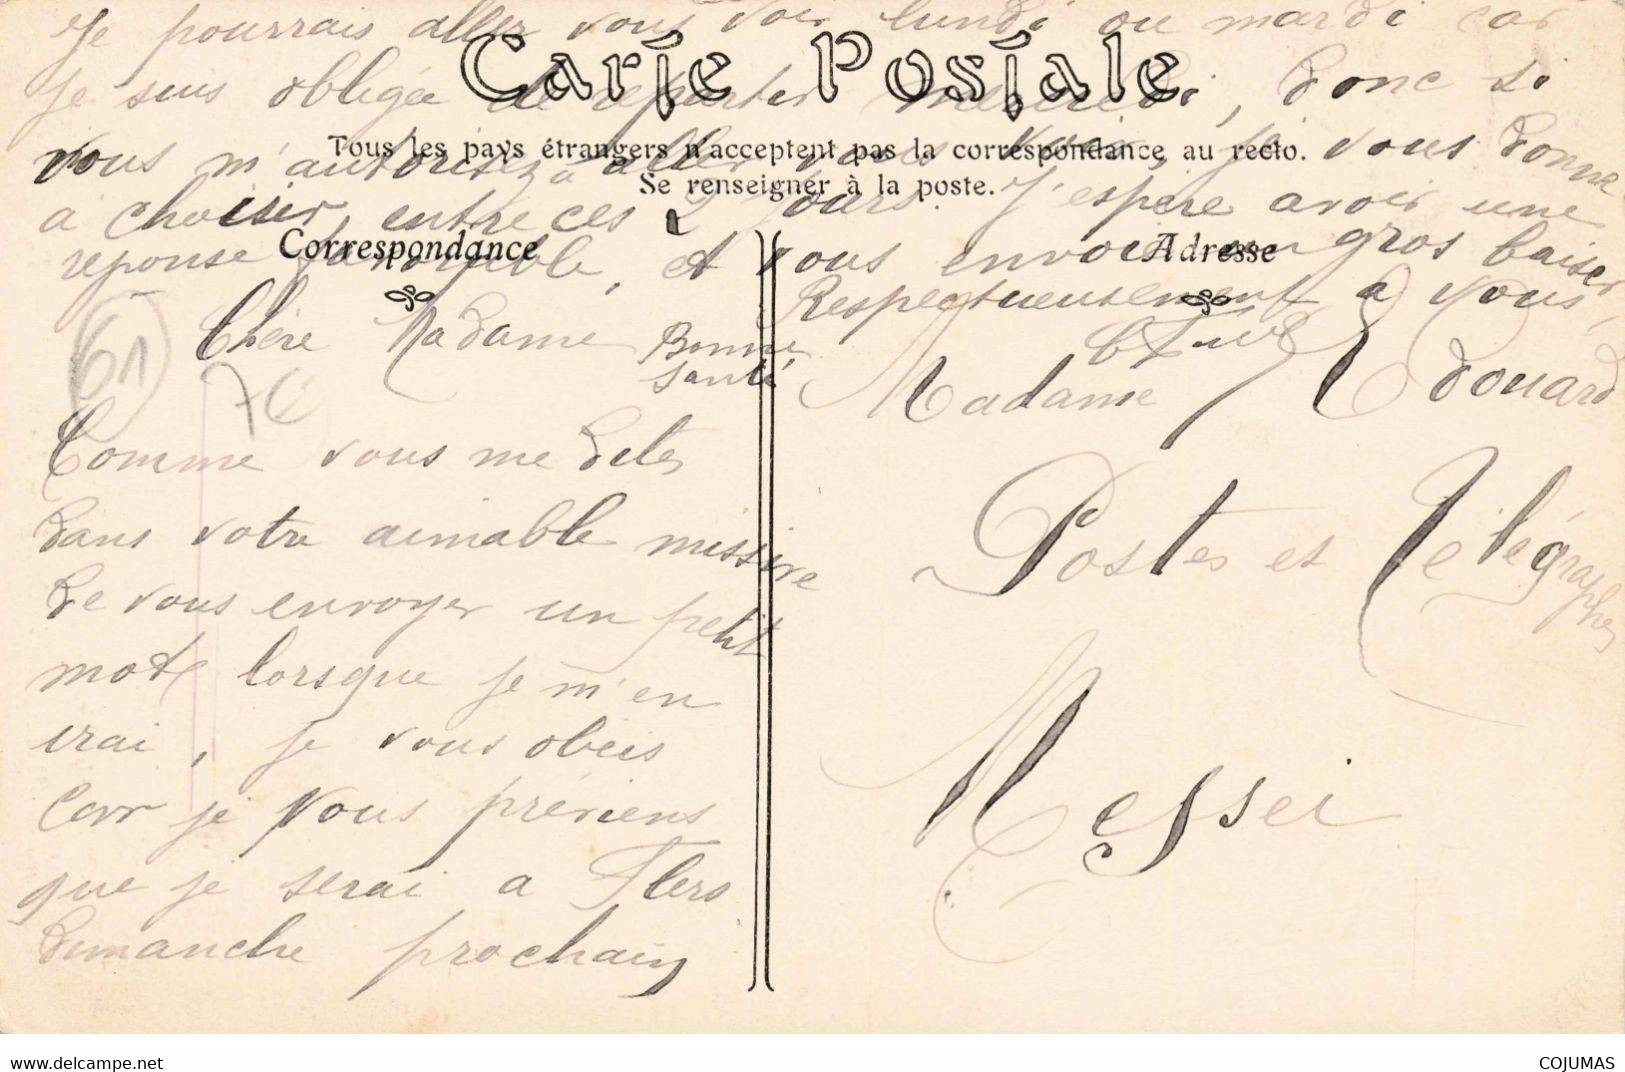 Je pourrais aller vous voir lundi ou mardi car
je suis obligée de repartir mercredi, donc si
vous m'autorisez a aller vous voir, je vous donne
a choisir, entre ces 2 jours. J'espère avoir une
reponse favorable, et vous envoi un gros baiser
Respectueusement a vous,
Carte Postale
Tous les pays étrangers n'acceptent pas la correspondance au recto.
Se renseigner à la poste.
Correspondance
Adresse
61
70
Chère Madame
Bonne
Santé
Comme vous me dites
dans votre aimable missive
de vous envoyer un petit
mote lorsque je m'en
irai, je vous obéis
Carr je vous préviens
que je serai a Flers
dimanche prochain
Madame Edouard
Postes et Télégraphes
Messei
delcampe.net
COJUMAS